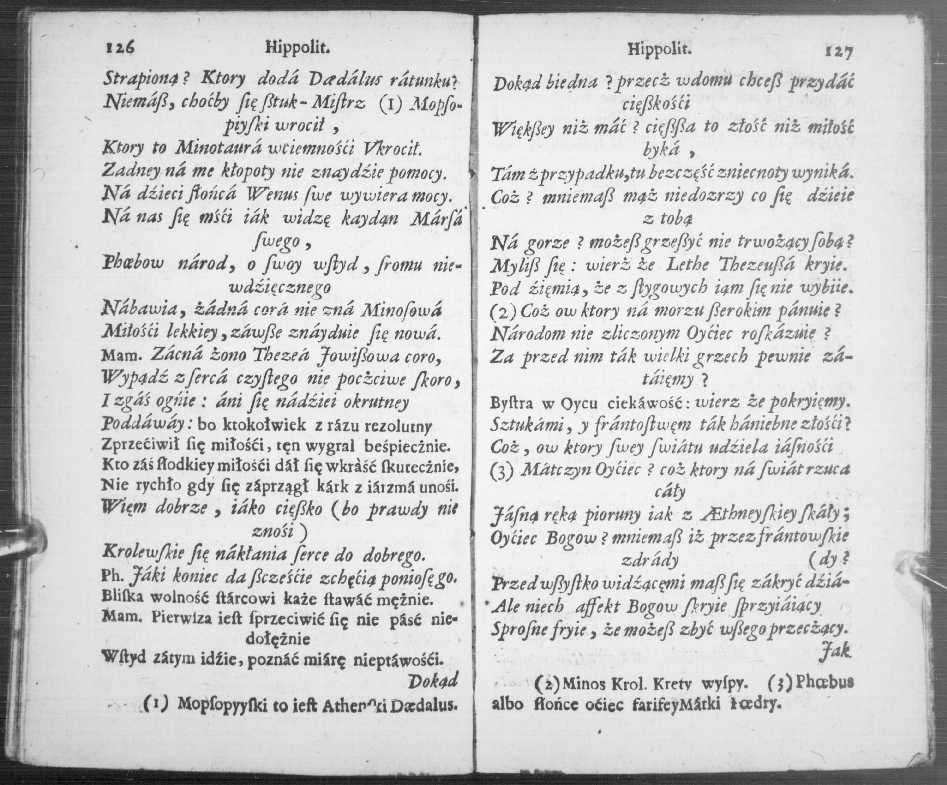 126 Hippolit.
Strapioną? Ktory dodá Dædálus rátunku?
Niemáß, choćby ſię ßtuk-Miſtrz (1) Mopſo-
piyſki wrocił,
Ktory to Minotaurá wciemnośći Vkrocił.
Zadney ná me kłopoty nie znaydźie pomocy.
Ná dźieci ſłońcá Wenus ſwe wywiera mocy.
Ná nas ſię mśći iák widzę kaydąn Mársá
ſwego,
Phœbow národ, o ſwoy wſtyd, ſromu nie-
wdźięcznego
Nábawia, żádná corá nie zná Minosowá
Miłośći lekkiey, záwſße znáyduie ſię nowá.
Mam. Zácná żono Thezeá Jowißowa coro,
Wypądź z ſercá czyſtego nie poczćiwe ſkoro,
I zgáś ogńie: áni ſię nádźiei okrutney
Poddáwáy: bo ktokolwiek z rázu rezolutny
Zprzećiwił ſię miłośći, tęn wygrał beśpiecżnie.
Kto záś ſłodkiey miłośći dáł ſię wkráść ſkutecżnie,
Nie rychło gdy ſię záprzągł kárk z iárzmá unośi.
Więm dobrze, iáko cięſzko (bo prawdy nie
znośi)
Krolewſkie ſię nákłania ſerce do dobrego.
Ph. Jáki koniec da ßcześćie zchęćią ponioſęgo.
Bliſka wolność ſtárcowi każe ſtawáć mężnie.
Mam. Pierwſza ieſt ſprzeciwić ſię nie páść nie-
dołężnie
Wſtyd zátym idźie, poznáć miárę nieptáwośći.
Dokąd
(1) Mopſopyyſki to ieſt Atheńſki Dædalus.
Hippolit. 127
Dokąd biedna? przecż wdomu chceß przydáć
cięſzkośći
Więkßey niż máć? cięßßa to złość niż miłość
byká,
Tám z przypadku, tu bezcześć zniecnoty wyniká.
Coż? mniemaß mąż niedozrzy co ſię dźieie
z tobą
Ná gorze? możeß grzeßyć nie trwożący ſobą?
Myliß ſię: wierż że Lethe Thezeußá kryie.
Pod źięmią, że z ſtygowych iąm ſię nie wybiie.
(2) Coż ow ktory ná morzu ßerokim pánuie?
Národom nie zliczonym Oyćiec roſkázuie?
Za przed nim ták wielki grzech pewnie zá-
táięmy?
Byſtra w Oycu ciekáwość: wierz że pokryięmy.
Sztukámi, y frántoſtwęm ták hániebne złośći?
Coż, ow ktory ſwey ſwiátu udźiela iáſnośći
(3) Mátczyn Oyćiec? coż ktory ná ſwiát rzuca
cáły
Jáſną ręką pioruny iak z Æthneyſkiey ſkáły;
Oyćiec Bogow? mniemaß iż przez frántowſkie
zdrády (dy?
Przed wßyſtko widzącęmi maß ſię zákryć dźiá-
Ale niech affekt Bogow ſkryie ſprzyiáiący
Sproſne fryie, że możeß zbyć wßego przecżący.
Jak
(2) Minos Krol. Krety wyſpy. (3) Phœbus
albo ſłońce oćiec farifey Mátki Fœdry.